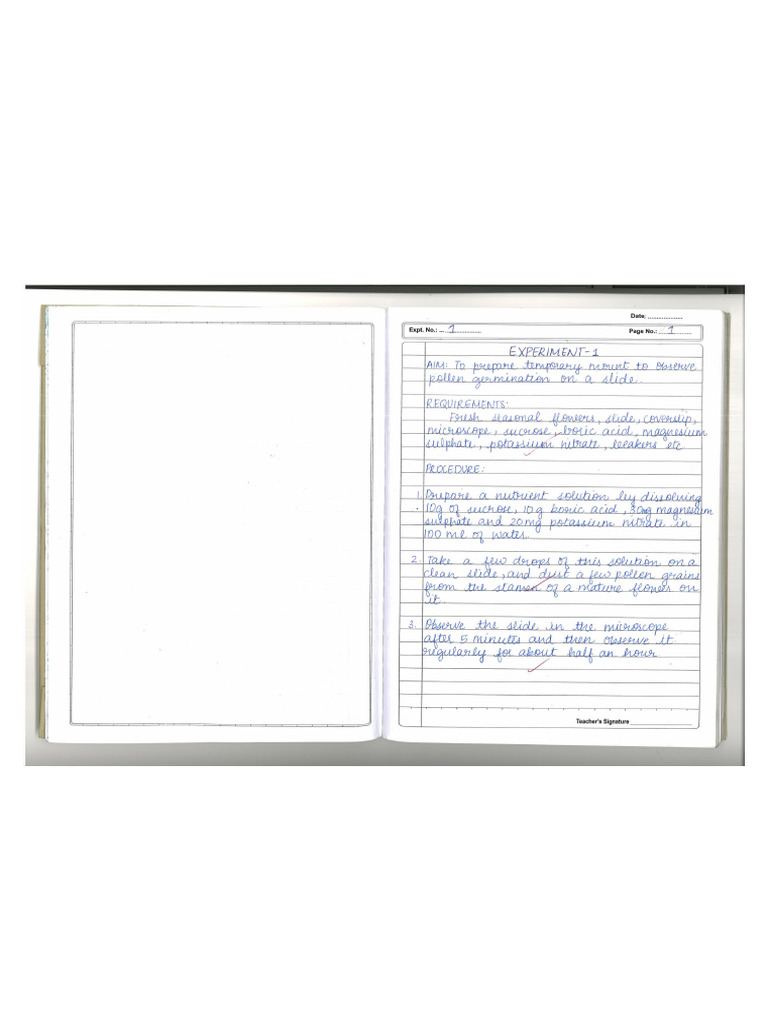 Date: ..................
Expt. No.: ... 1 ................
Page No.: 1 ..........
EXPERIMENT-1
AIM: To prepare temporary mount to observe
pollen germination on a slide.
REQUIREMENTS:
Fresh seasonal flowers, slide, coverslip,
microscope, sucrose, boric acid, magnesium
sulphate, potassium nitrate, beakers etc
PROCEDURE:
1. Prepare a nutrient solution by dissolving
10g of sucrose, 10g boric acid, 30mg magnesium
sulphate and 20mg potassium nitrate in
100 ml of water.
2. Take a few drops of this solution on a
clean slide, and dust a few pollen grains
from the stamen of a mature flower on
it.
3. Observe the slide in the microscope
after 5 minutes and then observe it
regularly for about half an hour.
Teacher's Signature